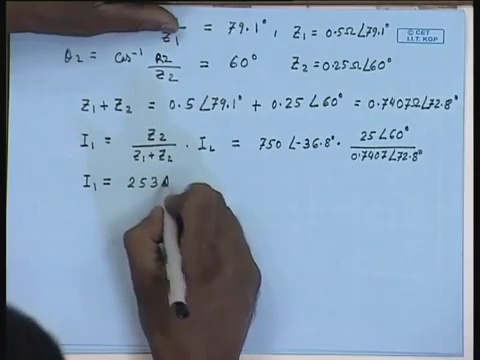 Z1 = 79.1°, Z1 = 0.5Ω∠79.1°
© CET
I.I.T. KGP
θ2 = Cos⁻¹ R2/Z2 = 60° Z2 = 0.25Ω∠60°
Z1 + Z2 = 0.5∠79.1° + 0.25∠60° = 0.7407Ω∠72.8°
I1 = Z2/(Z1+Z2) · IL = 750∠-36.8° · 25∠60°/0.7407∠72.8°
I1 = 253A